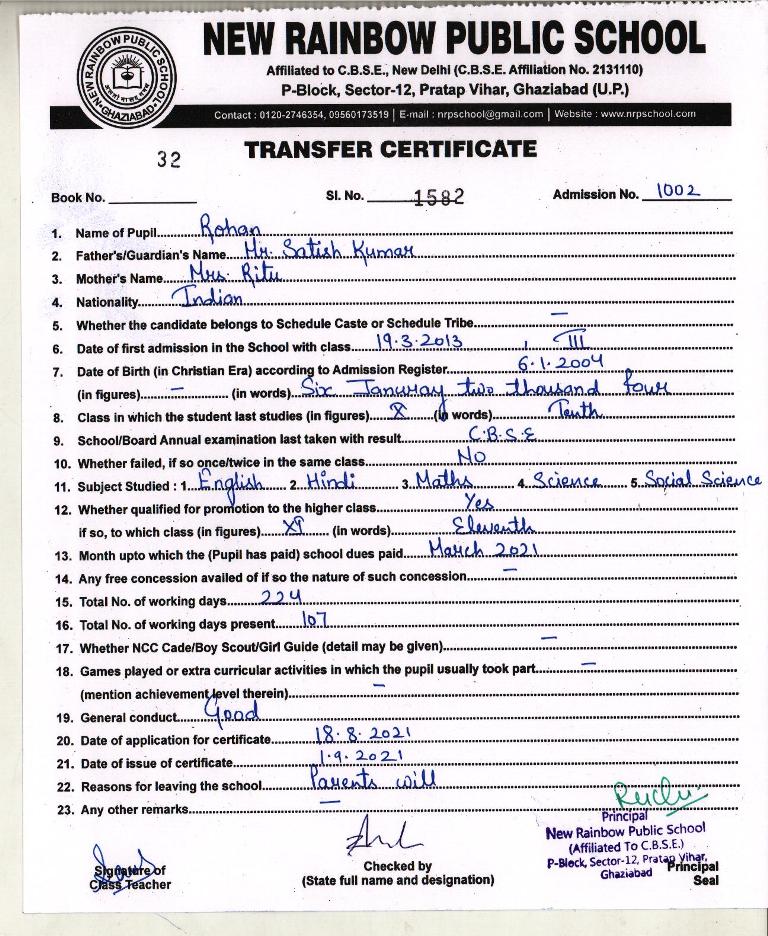 NEW RAINBOW PUBLIC SCHOOL
NEW RAINBOW PUBLIC SCHOOL
GHAZIABAD
Affiliated to C.B.S.E., New Delhi (C.B.S.E. Affiliation No. 2131110)
P-Block, Sector-12, Pratap Vihar, Ghaziabad (U.P.)
Contact : 0120-2746354, 09560173519 | E-mail : nrpschool@gmail.com | Website : www.nrpschool.com
TRANSFER CERTIFICATE
32
Book No. Sl. No. 1582 Admission No. 1002
1. Name of Pupil Rohan
2. Father's/Guardian's Name Mr. Satish Kumar
3. Mother's Name Mrs. Ritu
4. Nationality Indian
5. Whether the candidate belongs to Schedule Caste or Schedule Tribe —
6. Date of first admission in the School with class 19.3.2013, III
7. Date of Birth (in Christian Era) according to Admission Register 6.1.2004
(in figures) — (in words) Six Januray two thousand four
8. Class in which the student last studies (in figures) X (in words) Tenth
9. School/Board Annual examination last taken with result C.B.S.E
10. Whether failed, if so once/twice in the same class No
11. Subject Studied : 1. English 2. Hindi 3. Maths 4. Science 5. Social Science
12. Whether qualified for promotion to the higher class Yes
if so, to which class (in figures) XI (in words) Eleventh
13. Month upto which the (Pupil has paid) school dues paid March 2021
14. Any free concession availed of if so the nature of such concession —
15. Total No. of working days 224
16. Total No. of working days present 107
17. Whether NCC Cade/Boy Scout/Girl Guide (detail may be given) —
18. Games played or extra curricular activities in which the pupil usually took part —
(mention achievement level therein) —
19. General conduct Good
20. Date of application for certificate 18.8.2021
21. Date of issue of certificate 1.9.2021
22. Reasons for leaving the school Parents will
23. Any other remarks —
Principal
New Rainbow Public School
(Affiliated To C.B.S.E.)
P-Block, Sector-12, Pratap Vihar,
Ghaziabad
Signature of
Class Teacher
Checked by
(State full name and designation)
Principal
Seal